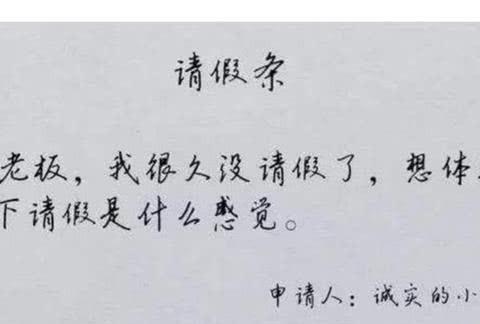 请假条
老板，我很久没请假了，想体
下请假是什么感觉。
申请人：诚实的小